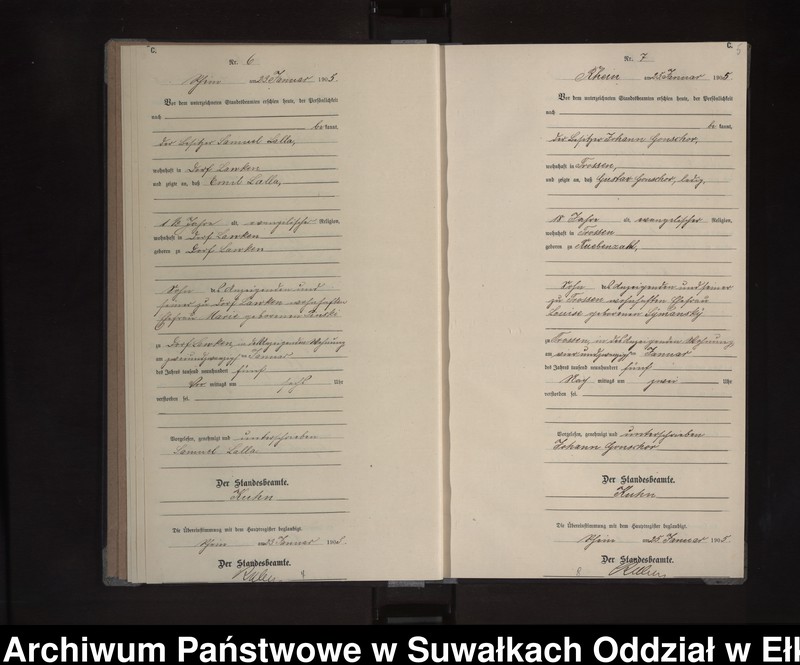 C.
Nr. 6
Rhein am 23 Januar 1905.
Vor dem unterzeichneten Standesbeamten erschien heute, der Persönlichkeit
nach
be kannt,
der Besitzer Samuel Lalla,
wohnhaft in Dorf Lawken
und zeigte an, daß Emil Lalla,
1 1/2 Jahre a. evangelischer Religion,
wohnhaft in Dorf Lawken
geboren zu Dorf Lawken
Sohn des Anzeigenden und
seiner zu Dorf Lawken wohnhaften
Ehefrau Marie geborenen
zu Dorf Lawken, in des Anzeigenden Wohnung
am zweiundzwanzigsten Januar
des Jahres tausend neunhundert fünf
Vor mittags um Uhr
verstorben sei.
Vorgelesen, genehmigt und unterschrieben
Samuel Lalla
Der Standesbeamte.
Kuhn
Die Übereinstimmung mit dem Hauptregister beglaubigt.
Rhein am 23 Januar 1905.
Der Standesbeamte.
C.
5
Nr. 7
Rhein am 25 Januar 1905.
Vor dem unterzeichneten Standesbeamten erschien heute, der Persönlichkeit
nach
be kannt,
der Besitzer Johann Gonschor,
wohnhaft in Trossen,
und zeigte an, daß Gustav Gonschor, ledig,
18 Jahre a. evangelischer Religion,
wohnhaft in Trossen
geboren zu Ruebenzahl,
Sohn des Anzeigenden und seiner
zu Trossen wohnhaften Ehefrau
Louise geborenen Symanski
zu Trossen, in des Anzeigenden Wohnung
am vierundzwanzigsten Januar
des Jahres tausend neunhundert fünf
Nach mittags um zwei Uhr
verstorben sei.
Vorgelesen, genehmigt und unterschrieben
Johann Gonschor
Der Standesbeamte.
Kuhn
Die Übereinstimmung mit dem Hauptregister beglaubigt.
Rhein am 25 Januar 1905.
Der Standesbeamte.
Archiwum Państwowe w Suwałkach Oddział w Ełk